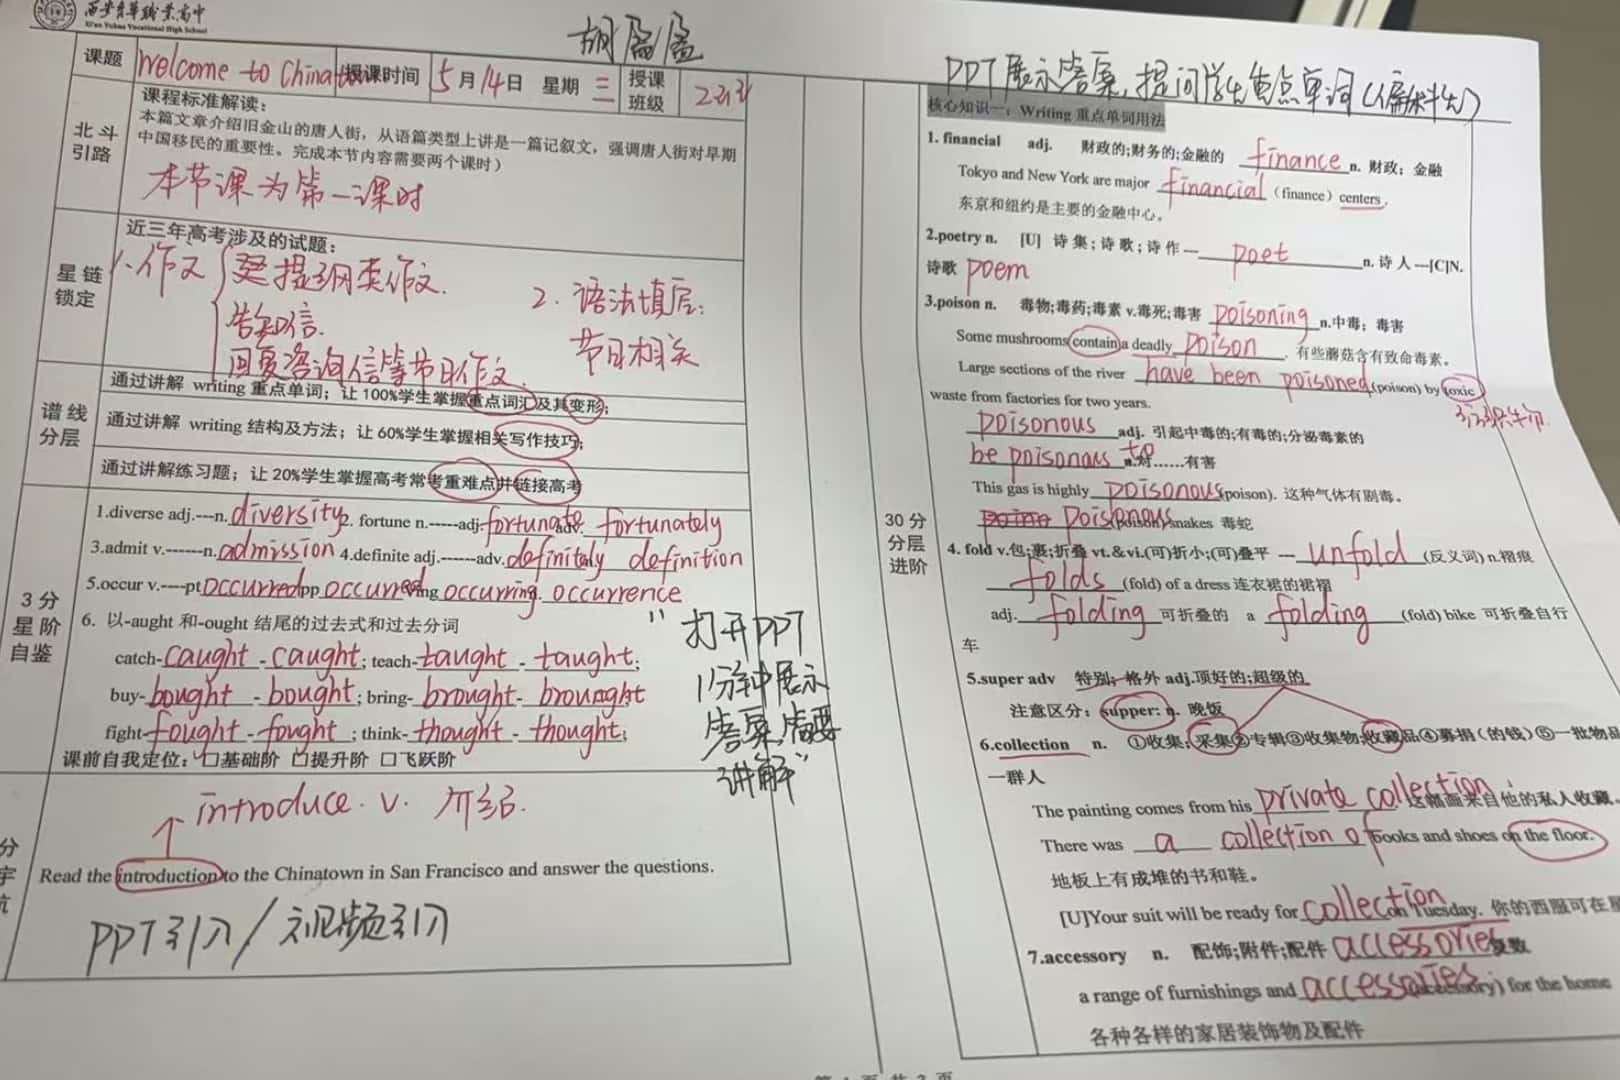 西安育华职业高中
Xi'an Yuhua Vocational High School
胡盈盈
课题 Welcome to Chinatown 授课时间 5月14日 星期三 授课班级
北斗引路
课程标准解读：
本篇文章介绍旧金山的唐人街，从语篇类型上讲是一篇记叙文，强调唐人街对早期
中国移民的重要性。完成本节内容需要两个课时）
本节课为第一课时
星链锁定
近三年高考涉及的试题：
1、作文
提纲类作文.
告知信.
回复咨询信等节日作文.
2. 语法填空:
节日相关
谱线分层
通过讲解 writing 重点单词；让 100%学生掌握重点词汇及其变形；
通过讲解 writing 结构及方法；让 60%学生掌握相关写作技巧；
通过讲解练习题；让 20%学生掌握高考常考重难点并链接高考
3 分
星 阶
自鉴
1.diverse adj.---n. diversity 2. fortune n.-----adj. fortunate adv. fortunately
3.admit v.------n. admission 4.definite adj.------adv. definitely definition
5.occur v.----pt occurred pp occurred ving occurring. occurrence
6. 以-aught 和-ought 结尾的过去式和过去分词
catch- caught - caught; teach- taught - taught;
buy- bought - bought; bring- brought- brounght
fight- fought - fought; think- thought - thought;
课前自我定位：□基础阶 □提升阶 □飞跃阶
"打开PPT
1分钟展示
答案,需要
讲解"
分
宇
航
introduce. v. 介绍.
Read the introduction to the Chinatown in San Francisco and answer the questions.
PPT引入/视频引入
PPT展示答案,提问学生重点单词(偏科生)
30 分
分层
进阶
核心知识一：Writing 重点单词用法
1. financial adj. 财政的;财务的;金融的 finance n. 财政；金融
Tokyo and New York are major financial (finance) centers.
东京和纽约是主要的金融中心。
2.poetry n. [U] 诗集;诗歌;诗作— poet n. 诗人—[C]N.
诗歌 poem
3.poison n. 毒物;毒药;毒素 v.毒死;毒害 poisoning n.中毒；毒害
Some mushrooms contain a deadly poison . 有些蘑菇含有致命毒素。
Large sections of the river have been poisoned (poison) by toxic
waste from factories for two years.
poisonous adj. 引起中毒的;有毒的;分泌毒素的
be poisonous to n.对……有害
This gas is highly poisonous (poison). 这种气体有剧毒。
poisonous (poison) snakes 毒蛇
4. fold v.包;裹;折叠 vt.&vi.(可)折小;(可)叠平 — unfold (反义词) n.褶痕
folds (fold) of a dress 连衣裙的裙褶
adj. folding 可折叠的 a folding (fold) bike 可折叠自行
车
5.super adv 特别；格外 adj.顶好的;超级的
注意区分：supper: n. 晚饭
6.collection n. ①收集；采集②专辑③收集物;收藏品④募捐(的钱)⑤一批物品
一群人
The painting comes from his private collection . 这幅画来自他的私人收藏。
There was a collection of books and shoes on the floor.
地板上有成堆的书和鞋。
[U]Your suit will be ready for collection on Tuesday. 你的西服可在星
7.accessory n. 配饰;附件;配件 accessories 复数
a range of furnishings and accessories (accessory) for the home
各种各样的家居装饰物及配件